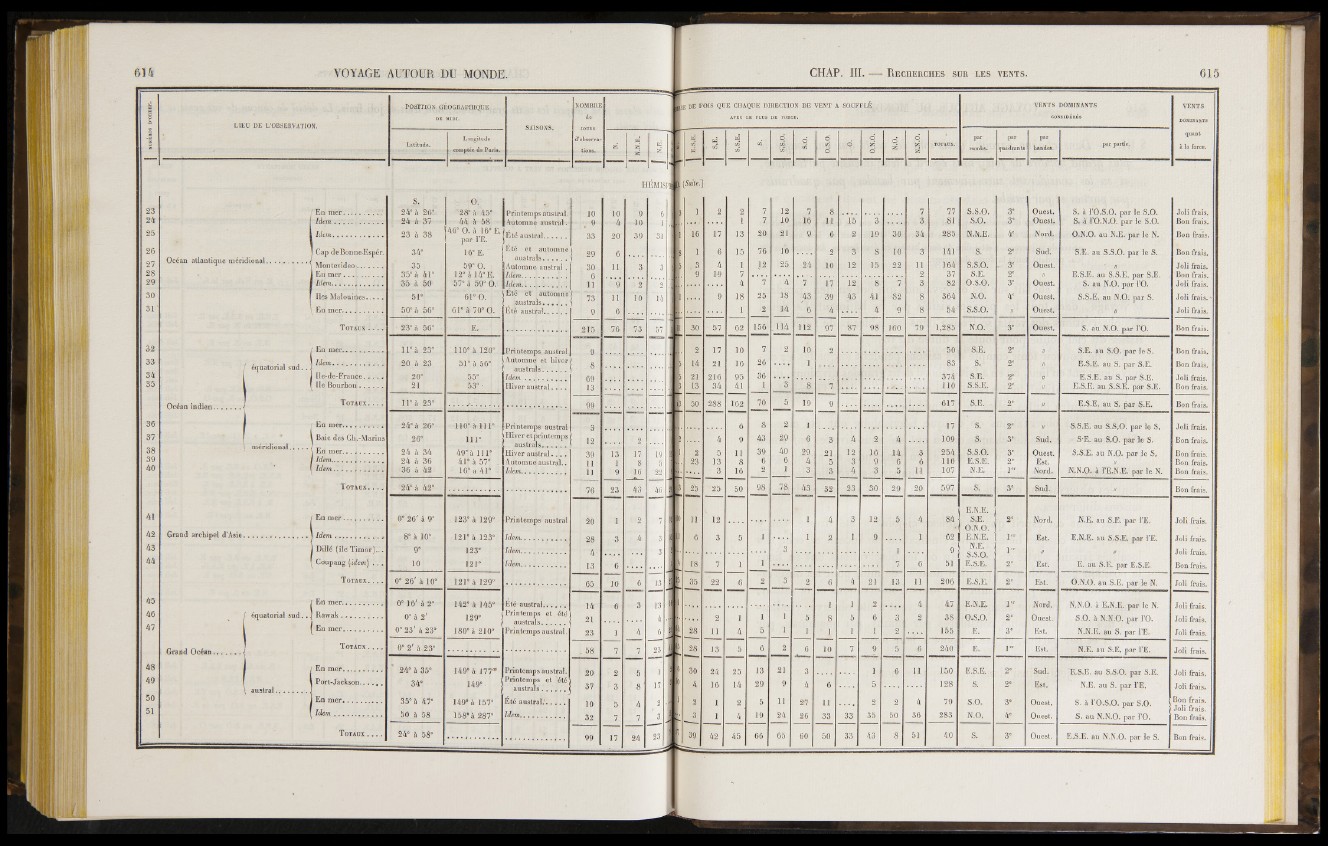 614 VOYAGE AUTOUR DU MONDE.
CHAP. III. — RECHERCHES SUR LES VENTS. 615
LIEU DE L'OBSERVATION.
POSITION GÉOGRAPHIQUE
DE MIDI.
Latitude.
Longitude
comptée de Paris.
SAISONS.
NOMBRE
de
d'observa-
tions.
N.
N.N.E.
N.E.
DE FOIS QUE CHAQUE DIRECTION DU VENT A SOUFFLÉ
E.S.E. S.E. S.S.E. S. S.S.O. S.O. O.S.O. O. O.N.O. N.O. N.N.O. TOTAUX.
VENTS DOMINANTS
CONSIDÉRÉS
par quadrants
par bandes
par partie.
VENTS
DOMINANTS
quant
à la force.
HÉMIS
(Suite.)
S. O.
23 En mer 24° à 26° 28° à 45° Printemps austral. 10 10 9 6
1 2 2 7 12 7 8 7 77 S.S.O. 3° Ouest. S. à l'O.S.O. par le S.O. Joli frais.
24 Idem 24 à 37 44 à 58 Automne austral. 9 4 10
1 7 10 10 11 15 3 3 81 S.O. 3° Ouest. S. à l'O.N.O. par le S.O. Bon frais.
25 Idem 23 à 38 46° O. à 16° E. par l'E. Été austral 33 20 39
16 17 13 20 21 9 6 2 19 36 34 285 N.N.E. 4° Nord. O.N.O. au N.E. par le N. Bon frais.
Océan atlantique méridional
26 Cap de Bonne-Espér. 34° 16° E. Été et automne australs 29 6
1 6 15 76 10 2 3 8 10 3 141 S. 2° Sud. S.E. au S.S.O. par le S. Bon frais.
27 Montevideo 35 59° O. Automne austral. 30 11 3 3
3 4 1 12 25 24 10 12 15 22 11 164 S.S.O. 3° Ouest. " Joli frais.
28 En mer 35° à 41° 12° à 14° E. Idem 6
9 10 7 2 37 S.E. 2° " E.S.E. au S.S.E. par S.E. Bon frais.
29 Idem 35 à 50 57° à 59° O. Idem 11 9 2 2
4 7 4 7 17 12 8 7 3 82 O.S.O. 3° Ouest. S. au N.O. par l'O. Joli frais.
30 Iles Malouines 51° 61° O. Été et automne australs 73 11 10 14
9 18 25 18 43 39 43 41 82 8 364 N.O. 4° Ouest. S.S.E. au N.O. par S. Joli frais.
31 En mer 50° à 56° 61° à 70° O. Été austral 9 6
1 2 14 6 4 4 9 8 54 S.S.O. " Ouest. " Joli frais.
TOTAUX 23° à 56° E. 215 76 73 57
30 57 62 156 114 112 97 87 98 160 79 1,285 N.O. 3° Ouest. S. au N.O. par l'O. Bon frais.
Océan indien
équatorial sud
32 En mer 11° à 23° 110° à 120° Printemps austral 9
2 17 10 7 2 10 2 50 S.E. 2° " S.E. au S.O. par le S. Bon frais.
33 Idem 20 à 23 51° à 56° Automne et hiver australs 8
14 21 16 26 1 83 S. 2° " E.S.E. au S. par S.E. Bon frais.
34 Ile-de-France 20° 55° Idem 69
21 216 95 36 374 S.E. 2° " E.S.E. au S. par S.E. Joli frais.
35 Ile Bourbon 21 53° Hiver austral 13
13 34 41 1 3 8 7 110 S.S.E. 2° " E.S.E. au S.S.E. par S.E. Bon frais.
TOTAUX 11° à 23° 99
30 288 162 70 5 19 9 617 S.E. 2° " E.S.E. au S. par S.E. Bon frais.
méridional
36 En mer 24° à 26° 110° à 111° Printemps austral 3
6 8 2 1 17 S. 2° " S.S.E. au S.S.O. par le S. Joli frais.
37 Baie des Ch.-Marins 26° 111° Hiver et printemps australs 12 2
4 9 43 29 6 3 4 2 4 109 S. 3° Sud. S.E. au S.O. par le S. Bon frais.
38 En mer 24 à 34 49° à 111° Hiver austral 39 13 17 19
2 5 11 39 40 29 21 12 16 14 5 254 S.S.O. 3° Ouest. S.S.E. au N.O. par le S. Bon frais.
39 Idem 24 à 36 41° à 57° Automne austral 11 1 8 5
23 13 8 6 6 4 5 3 9 6 6 110 E.S.E. 2° Est. " Bon frais.
40 Idem 36 à 42 16° à 41° Idem 11 9 16 22
3 16 2 1 3 3 4 3 5 11 107 N.E. 1er Nord. N.N.O. à l'E.N.E. par le N. Bon frais.
TOTAUX 24° à 42° 76 23 43 46
25 25 50 98 78 43 32 23 30 29 20 597 S. 3° Sud. " Bon frais.
Grand archipel d'Asie
41 En mer 0° 26' à 9° 123° à 129° Printemps austral 20 1 2 7
11 12 1 4 3 12 5 4 84 E.N.E. S.E. O.N.O. 2° Nord. N.E. au S.E. par l'E. Joli frais.
42 Idem 8° à 10° 121° à 123° Idem 28 3 4 3
6 3 5 1 1 2 1 9 1 62 E.N.E. 1er Est. E.N.E. au S.S.E. par l'E. Joli frais.
43 Dillé (île Timor) 9° 123° Idem 4 3
3 1 9 N.E. S.S.O. 1er " " Joli frais.
44 Coupang (idem) 10 121° Idem 13 6
18 7 1 1 7 6 51 E.S.E. 2° Est. E. au S.E. par E.S.E. Bon frais.
TOTAUX 0° 26' à 10° 121° à 129° 65 10 6 13
35 22 6 2 3 2 6 4 21 13 11 206 E.S.E. 2° Est. O.N.O. au S.E. par le N. Joli frais.
Grand Océan
équatorial sud
45 En mer 0° 16' à 2° 142° à 145° Été austral 14 6 3 13
1 1 2 4 47 E.N.E. 1er Nord. N.N.O. à E.N.E. par le N. Joli frais.
46 Rawak 0° à 2' 129° Printemps et été australs 21 4
2 1 1 1 5 8 5 6 3 2 38 O.S.O. 2° Ouest. S.O. à N.N.O. par l'O. Joli frais.
47 En mer 0° 23' à 23° 180° à 210° Printemps austral 23 1 4 6
28 11 4 5 1 1 1 1 1 2 155 E. 3° Est. N.N.E. au S. par l'E. Joli frais.
TOTAUX 0° 2' à 23° 58 7 7 23
28 13 5 6 2 6 10 7 9 5 6 240 E. 1er Est. N.E. au S.E. par l'E. Joli frais.
austral
48 En mer 24° à 35° 149° à 177° Printemps austral. 20 2 5 1
30 24 25 13 21 3 1 6 11 150 E.S.E. 2° Sud. E.S.E. au S.S.O. par S.E. Joli frais.
49 Port-Jackson 34° 149° Printemps et été australs 37 3 8 17
4 16 14 29 9 4 6 5 128 S. 2° Est. N.E. au S. par l'E. Joli frais.
50 En mer 35° à 47° 149° à 157° Été austral 10 5 4 2
2 1 2 5 11 27 11 2 2 4 79 S.O. 3° Ouest. S. à l'O.S.O. par S.O. Bon frais. Joli frais.
51 Idem 50 à 58 158° à 287° Idem 32 7 7 3
3 1 4 19 24 26 33 33 35 50 36 283 N.O. 4° Ouest. S. au N.N.O. par l'O. Bon frais.
TOTAUX 24° à 58° 99 17 24 23
39 42 45 66 65 60 50 33 43 8 51 40 S. 3° Ouest. E.S.E. au N.N.O. par le S. Bon frais.